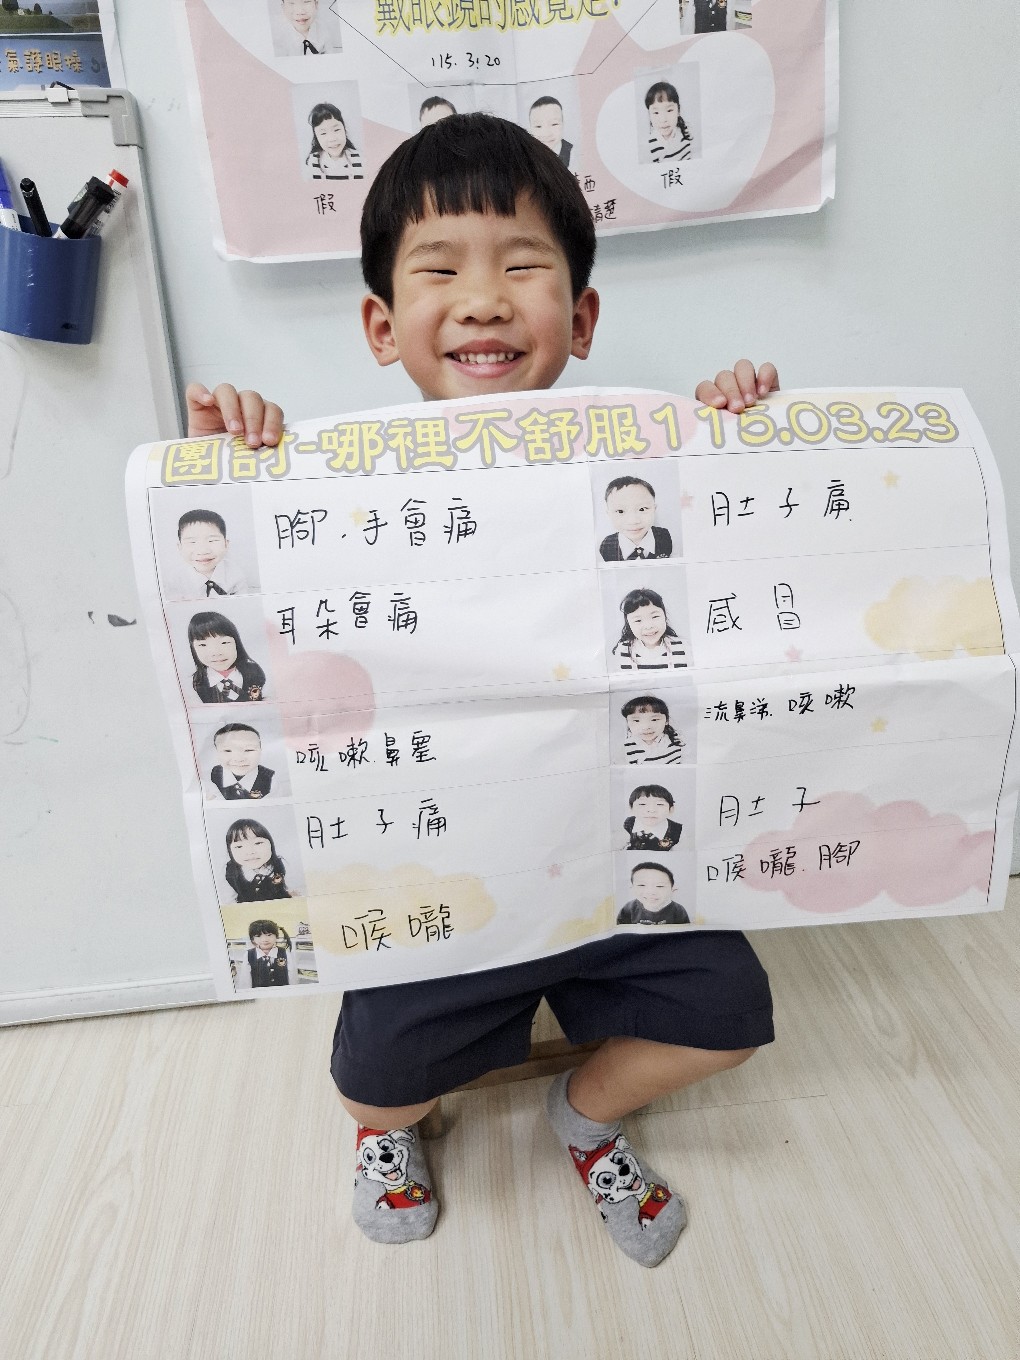 戴眼鏡的感覺是?
115.3.20
氣護眼操
假
假
清楚
團討-哪裡不舒服115.03.23
腳.手會痛
肚子痛
耳朵會痛
感冒
咳嗽.鼻塞
流鼻涕.咳嗽
肚子痛
肚子
喉嚨
喉嚨.腳